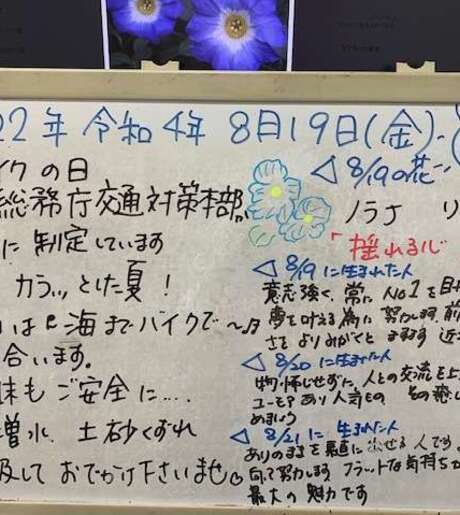 22年 令和4年 8月19日(金)
イクの日
総務庁交通対策本部が
に 制定しています
カラッとした夏！
は 海までバイクで〜♪
合います。
味もご安全に‥‥
増水 土砂くずれ
及して おでかけ下さいませ
◁ 8/19の花
ノラナ リ
「揺れる心
◁ 8/19 に生まれた人
意志強く、常に No1を目
夢を叶える為に 努力します
さを よりみがくと ますます 近
◁ 8/20 に生まれた人
物怖じせずに、人との交流を上
ユーモアあり 人気もの その癒し
めましょう
◁ 8/21 に 生まれた人
ありのままを素直に出せる人です。
向って努力します フラットな気持ち
最大の魅力です